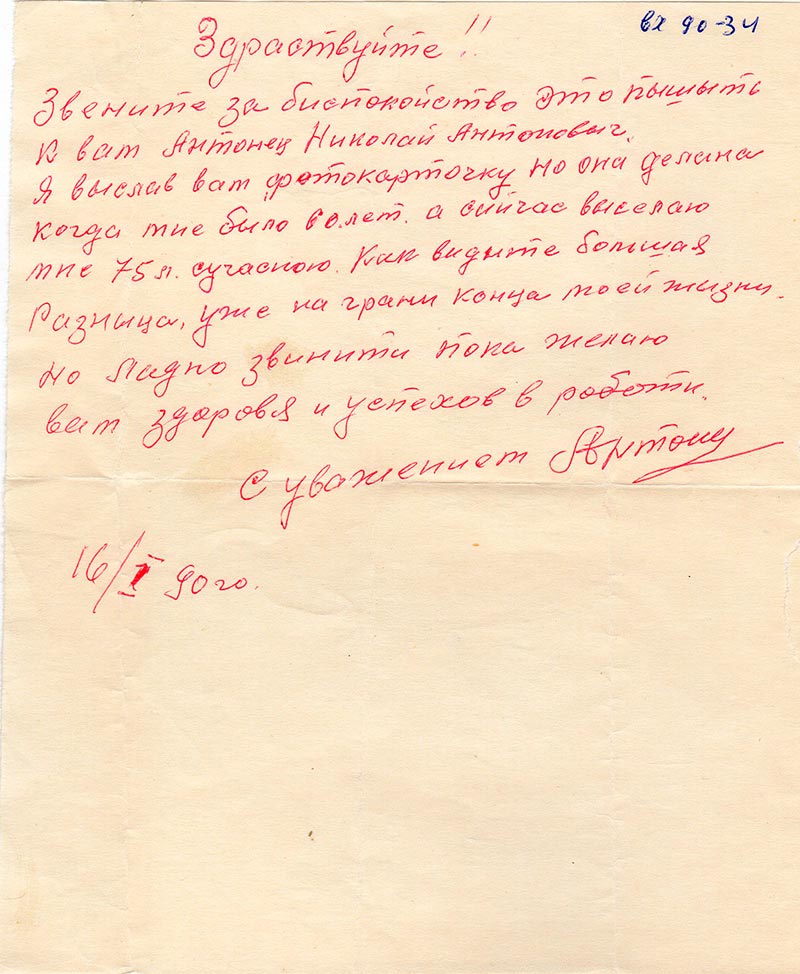 вх 90-34
Здраствуйте!!
Звените за биспокойство это пышыть
к вам Антонец Николай Антонович.
Я выслав вам фотокарточку но она делана
когда мне было 60 лет. а сийчас выселаю
мне 75 л. сучасною. Как видыте большая
Разница, уже на грани конца моей жизни.
но ладно звинити пока желаю
вам здоровя и успехов в работи.
С уважением Антонец
16/I 90 го.